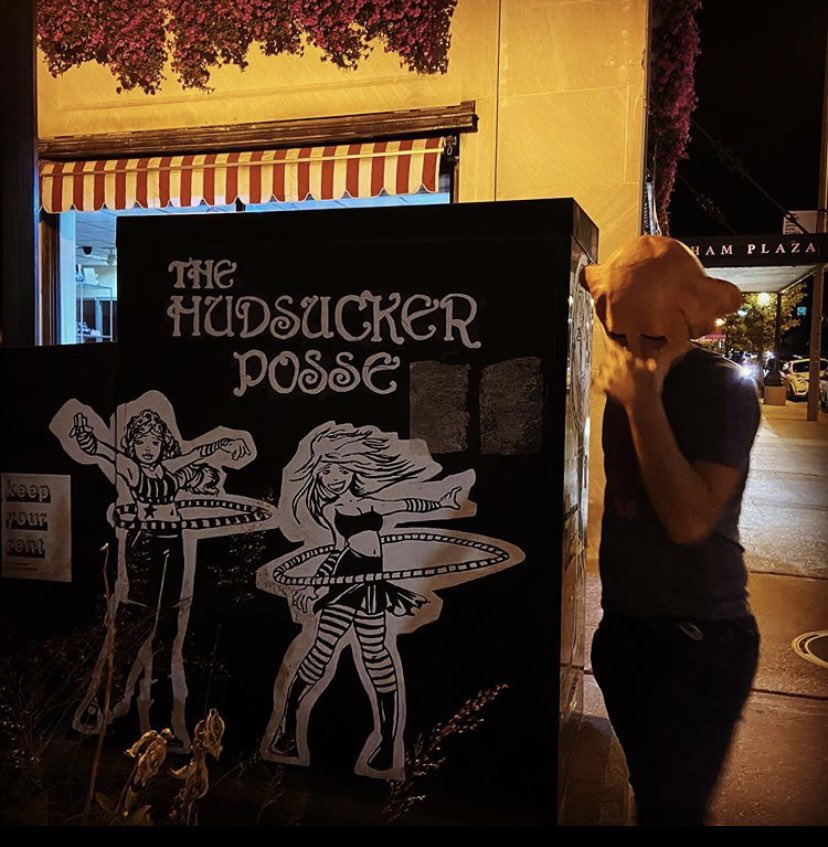 THE
HUDSUCKER
POSSE
keep
your
rent
HAM PLAZA